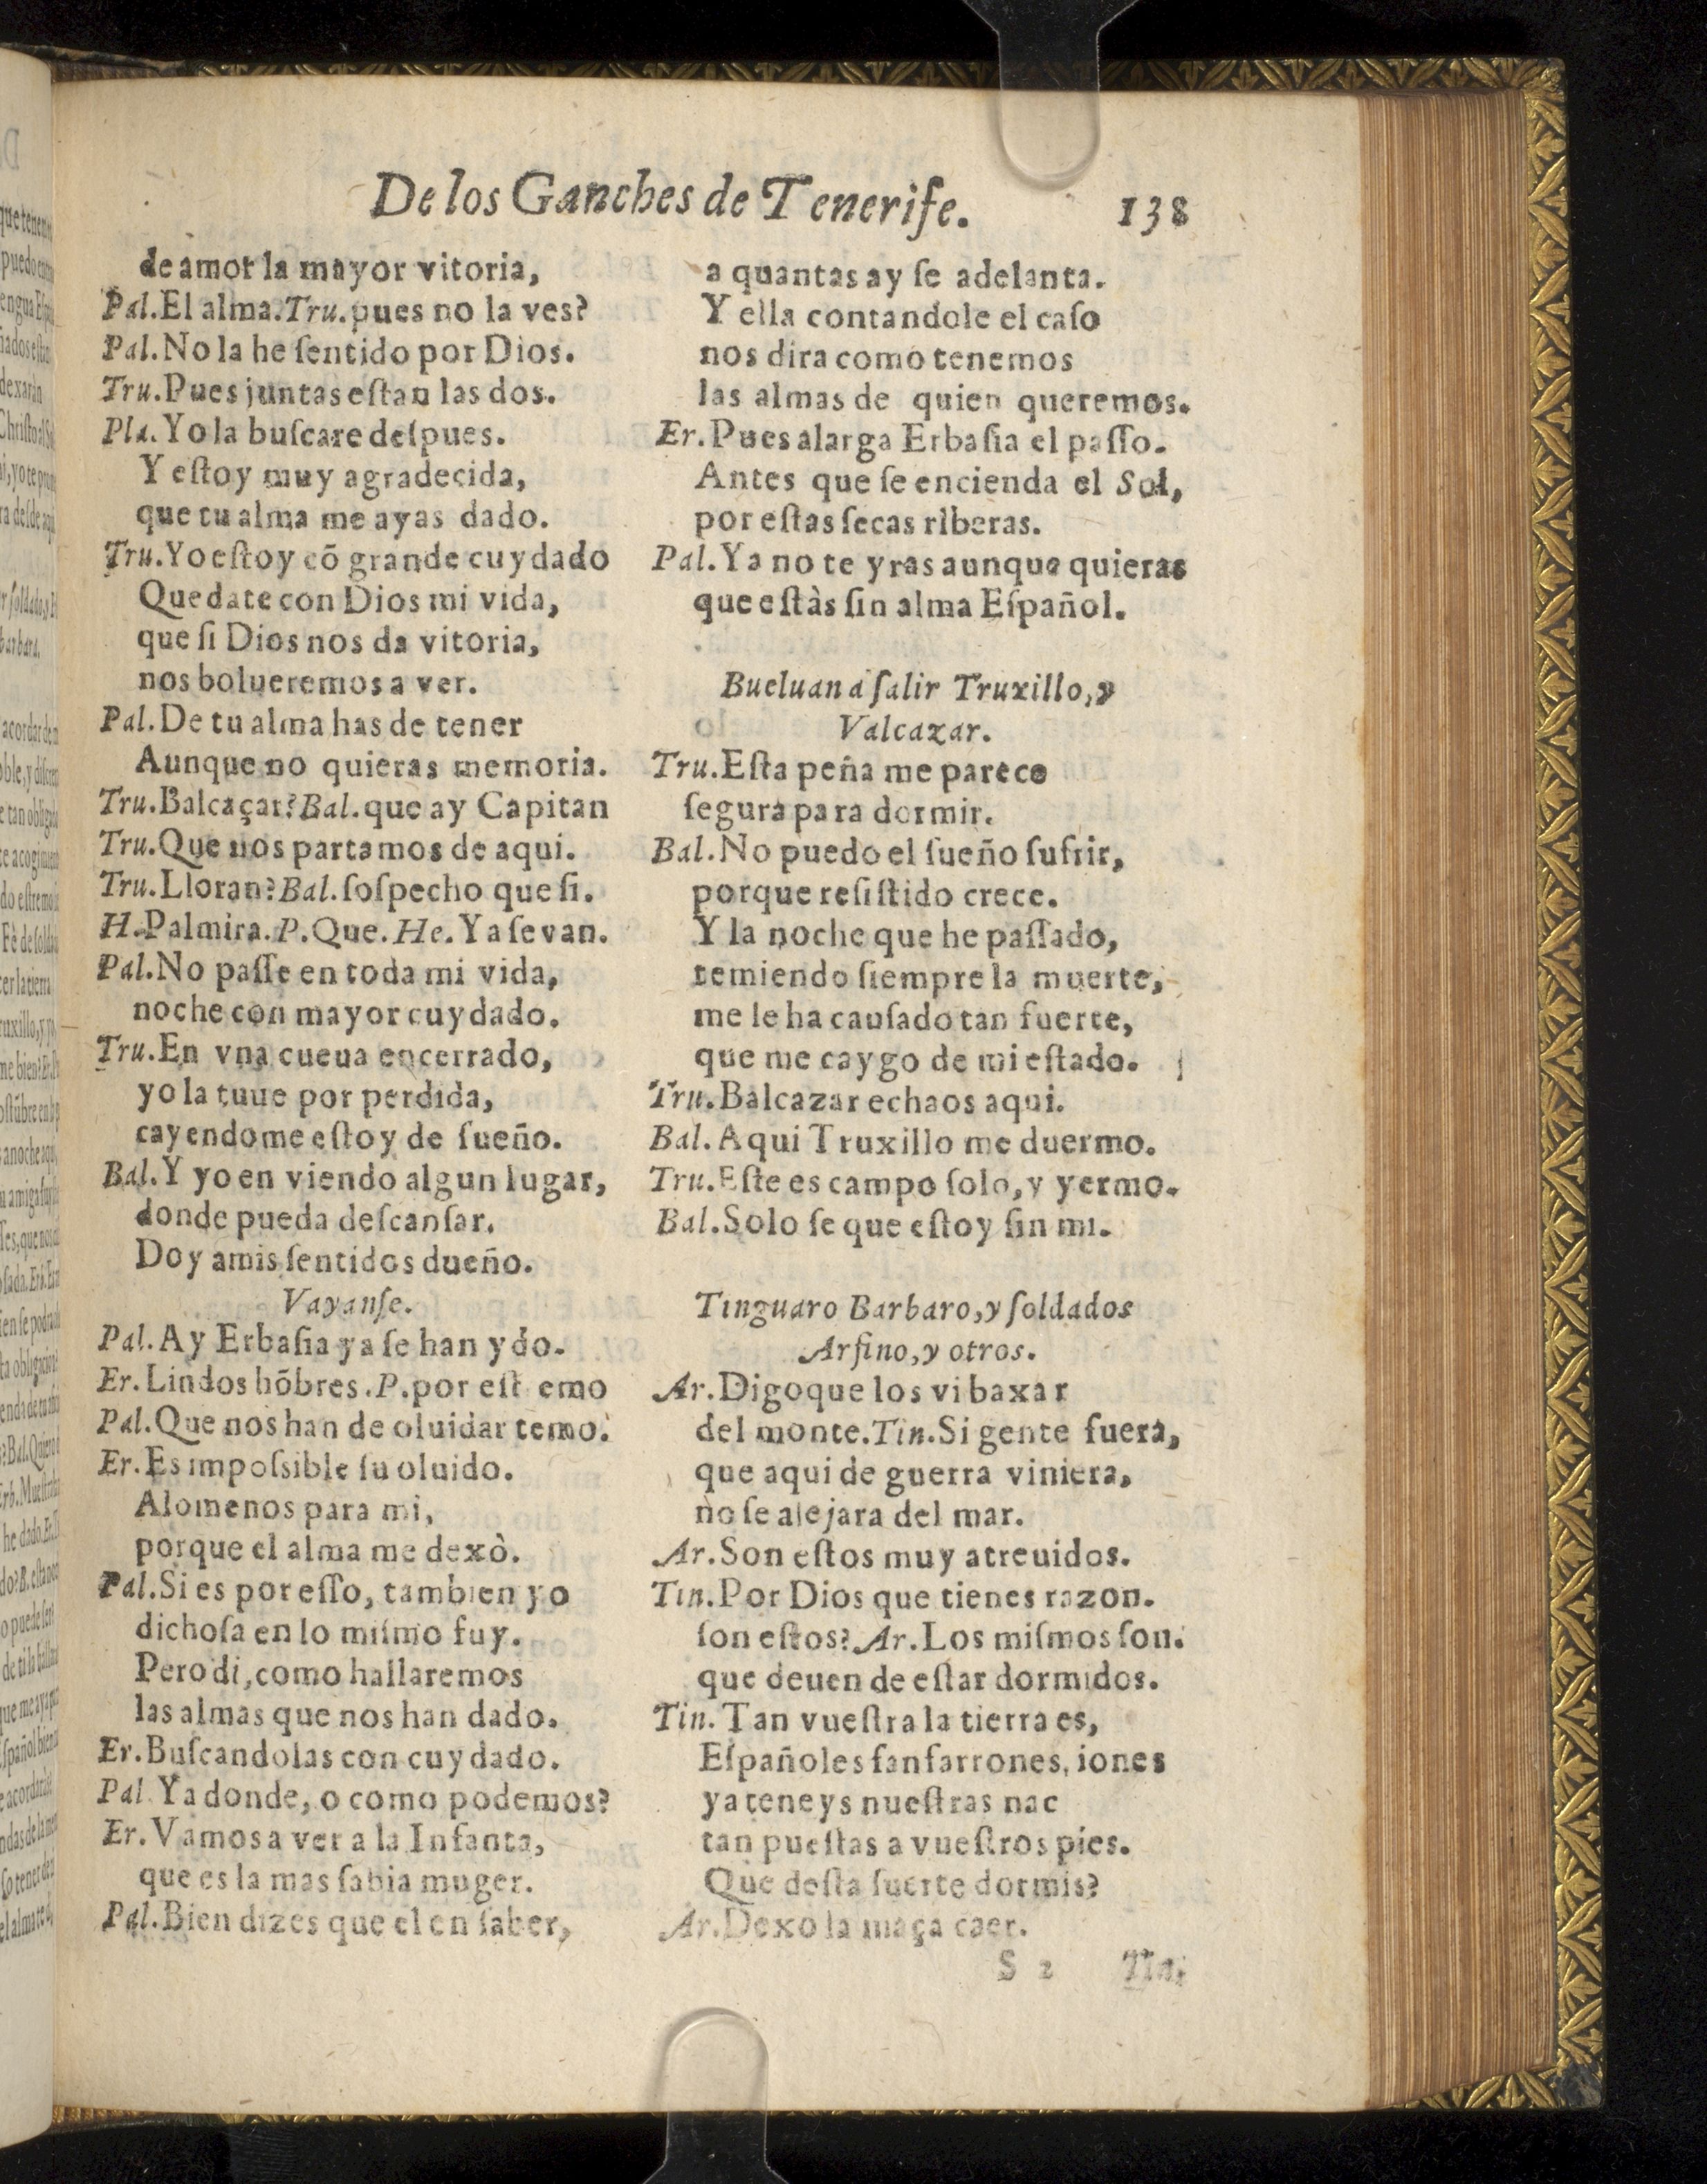 De los Ganches de Tenerife. 138
de amor la mayor vitoria,
Pal. El alma. Tru. pues no la ves?
Pal. No la he ſentido por Dios.
Tru. Pues juntas eſtan las dos.
Pla. Yo la buſcare deſpues.
Y eſtoy muy agradecida,
que tu alma me ayas dado.
Tru. Yo eſtoy cõ grande cuydado
Quedate con Dios mi vida,
que ſi Dios nos da vitoria,
nos bolueremos a ver.
Pal. De tu alma has de tener
Aunque no quieras memoria.
Tru. Balcaçar? Bal. que ay Capitan
Tru. Que nos partamos de aqui.
Tru. Lloran? Bal. ſoſpecho que ſi.
H. Palmira. P. Que. He. Ya ſe van.
Pal. No paſſe en toda mi vida,
noche con mayor cuydado.
Tru. En vna cueua encerrado,
yo la tuue por perdida,
cayendome eſtoy de ſueño.
Bal. Y yo en viendo algun lugar,
donde pueda deſcanſar.
Doy a mis ſentidos dueño.
Vayanſe.
Pal. Ay Erbaſia ya ſe han ydo.
Er. Lindos hõbres. P. por eſt emo
Pal. Que nos han de oluidar temo.
Er. Es impoſsible ſu oluido.
Alomenos para mi,
porque el alma me dexò.
Pal. Si es por eſſo, tambien yo
dichoſa en lo miſmo fuy.
Pero di, como hallaremos
las almas que nos han dado.
Er. Buſcandolas con cuydado.
Pal Y adonde, o como podemos?
Er. Vamos a ver a la Infanta,
que es la mas ſabia muger.
Pal. Bien dizes que el en ſaber,
a quantas ay ſe adelanta.
Y ella contandole el caſo
nos dira como tenemos
las almas de quien queremos.
Er. Pues alarga Erbaſia el paſſo.
Antes que ſe encienda el Sol,
por eſtas ſecas rìberas.
Pal. Ya no te yras aunque quieras
que eſtàs ſin alma Eſpañol.
Bueluan a ſalir Truxillo, y
Valcazar.
Tru. Eſta peña me parece
ſegura para dormir.
Bal. No puedo el ſueño ſufrir,
porque reſiſtido crece.
Y la noche que he paſſado,
temiendo ſiempre la muerte,
me le ha cauſado tan fuerte,
que me caygo de mi eſtado.
Tru. Balcazar echaos aqui.
Bal. Aqui Truxillo me duermo.
Tru. Eſte es campo ſolo, y yermo.
Bal. Solo ſe que eſtoy ſin mi.
Tinguaro Barbaro, y ſoldados
Arfino, y otros.
Ar. Digo que los vi baxar
del monte. Tin. Si gente fuera,
que aqui de guerra viniera,
no ſe alejara del mar.
Ar. Son eſtos muy atreuidos.
Tin. Por Dios que tienes razon.
ſon eſtos? Ar. Los miſmos ſon.
que deuen de eſtar dormidos.
Tin. Tan vueſtra la tierra es,
Eſpañoles fanfarrones, iones
ya teneys nueſtras nac
tan pueſtas a vueſtros pies.
Que deſta ſuerte dormis?
Ar. Dexo la maça caer.
S 2